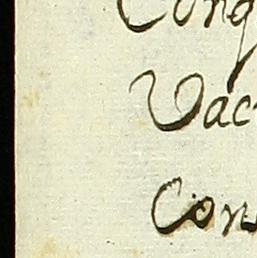 Conq
Vac
Con